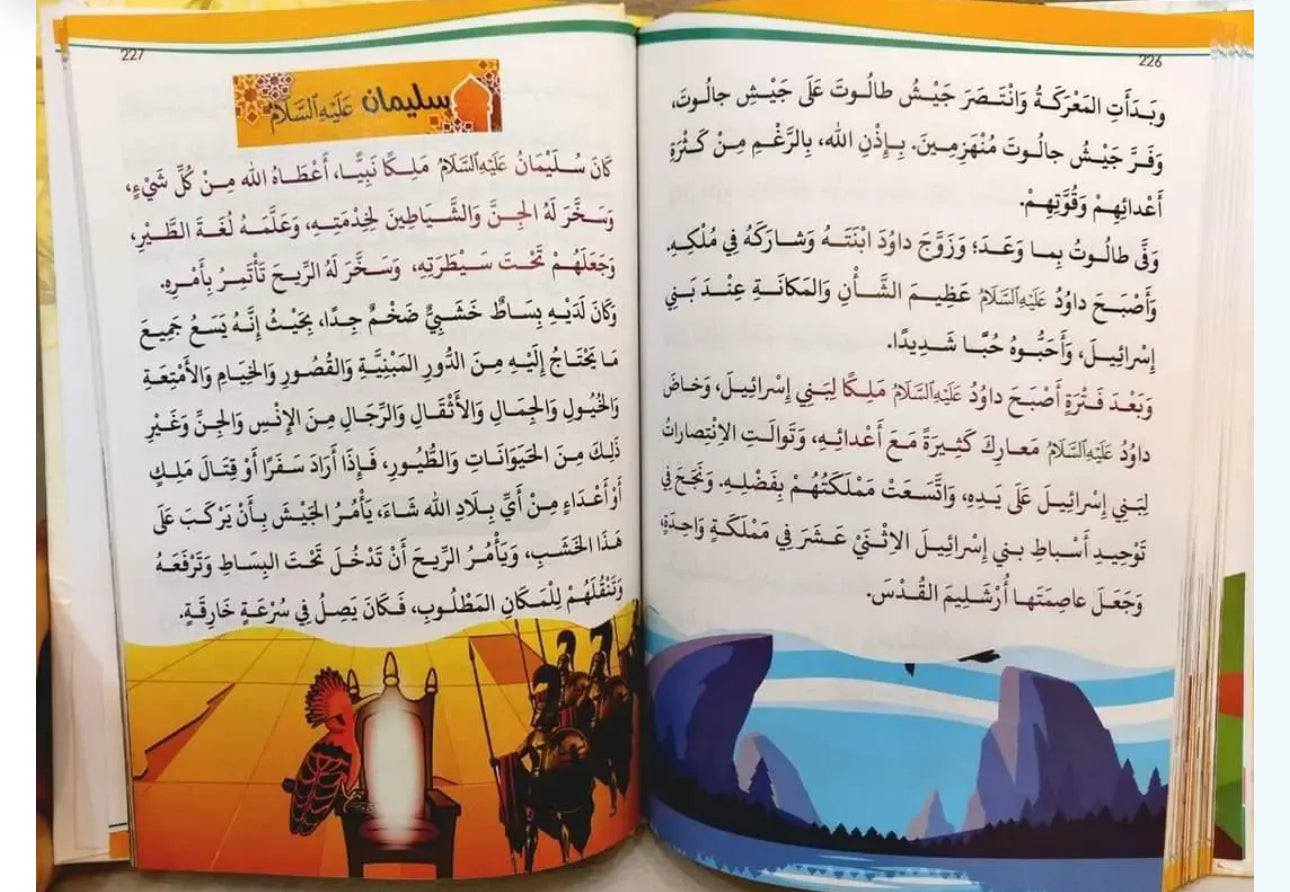 226
وَبَدَأَتِ المَعْرَكَةُ وَانْتَصَرَ جَيْشُ طالُوتَ عَلَى جَيْشِ جالُوتَ،
وَفَرَّ جَيْشُ جالُوتَ مُنْهَزِمِينَ. بِإِذْنِ الله، بِالرَّغْمِ مِنْ كَثْرَةِ
أَعْدائِهِمْ وَقُوَّتِهِمْ.
وَفَّى طالُوتُ بِما وَعَدَ؛ وَزَوَّجَ داوُدَ ابْنَتَهُ وَشارَكَهُ فِي مُلْكِهِ.
وَأَصْبَحَ داوُدُ عَلَيْهِ السَّلَامُ عَظِيمَ الشَّأْنِ وَالمَكانَةِ عِنْدَ بَنِي
إِسْرائِيلَ، وَأَحَبُّوهُ حُبًّا شَدِيدًا.
وَبَعْدَ فَتْرَةٍ أَصْبَحَ داوُدُ عَلَيْهِ السَّلَامُ مَلِكًا لِبَنِي إِسْرائِيلَ، وَخاضَ
داوُدُ عَلَيْهِ السَّلَامُ مَعارِكَ كَثِيرَةً مَعَ أَعْدائِهِ، وَتَوالَتِ الاِنْتِصاراتُ
لِبَنِي إِسْرائِيلَ عَلَى يَدِهِ، وَاتَّسَعَتْ مَمْلَكَتُهُمْ بِفَضْلِهِ. وَنَجَحَ فِي
تَوْحِيدِ أَسْباطِ بني إِسْرائِيلَ الاِثْنَيْ عَشَرَ فِي مَمْلَكَةٍ واحِدَةٍ،
وَجَعَلَ عاصِمَتَها أُرْشَلِيمَ القُدْسَ.
227
سليمان عَلَيْهِ السَّلَامُ
كَانَ سُلَيْمَانُ عَلَيْهِ السَّلَامُ مَلِكًا نَبِيًّا، أَعْطَاهُ الله مِنْ كُلِّ شَيْءٍ،
وَسَخَّرَ لَهُ الجِنَّ وَالشَّيَاطِينَ لِخِدْمَتِهِ، وَعَلَّمَهُ لُغَةَ الطَّيْرِ،
وَجَعَلَهُمْ تَحْتَ سَيْطَرَتِهِ، وَسَخَّرَ لَهُ الرِّيحَ تَأْتَمِرُ بِأَمْرِهِ.
وَكَانَ لَدَيْهِ بِسَاطٌ خَشَبِيٌّ ضَخْمٌ جِدًا، بِحَيْثُ إِنَّهُ يَسَعُ جَمِيعَ
مَا يَحْتَاجُ إِلَيْهِ مِنَ الدُّورِ المَبْنِيَّةِ وَالقُصُورِ وَالخِيَامِ وَالأَمْتِعَةِ
وَالخُيُولِ وَالجِمَالِ وَالأَثْقَالِ وَالرِّجَالِ مِنَ الإِنْسِ وَالجِنِّ وَغَيْرِ
ذَلِكَ مِنَ الحَيَوَانَاتِ وَالطُّيُورِ، فَإِذَا أَرَادَ سَفَرًا أَوْ قِتَالَ مَلِكٍ
أَوْ أَعْدَاءٍ مِنْ أَيِّ بِلَادِ الله شَاءَ، يَأْمُرُ الجَيْشَ بِأَنْ يَرْكَبَ عَلَى
هَذَا الخَشَبِ، وَيَأْمُرُ الرِّيحَ أَنْ تَدْخُلَ تَحْتَ البِسَاطِ وَتَرْفَعَهُ
وَتَنْقُلَهُمْ لِلْمَكَانِ المَطْلُوبِ، فَكَانَ يَصِلُ فِي سُرْعَةٍ خَارِقَةٍ.